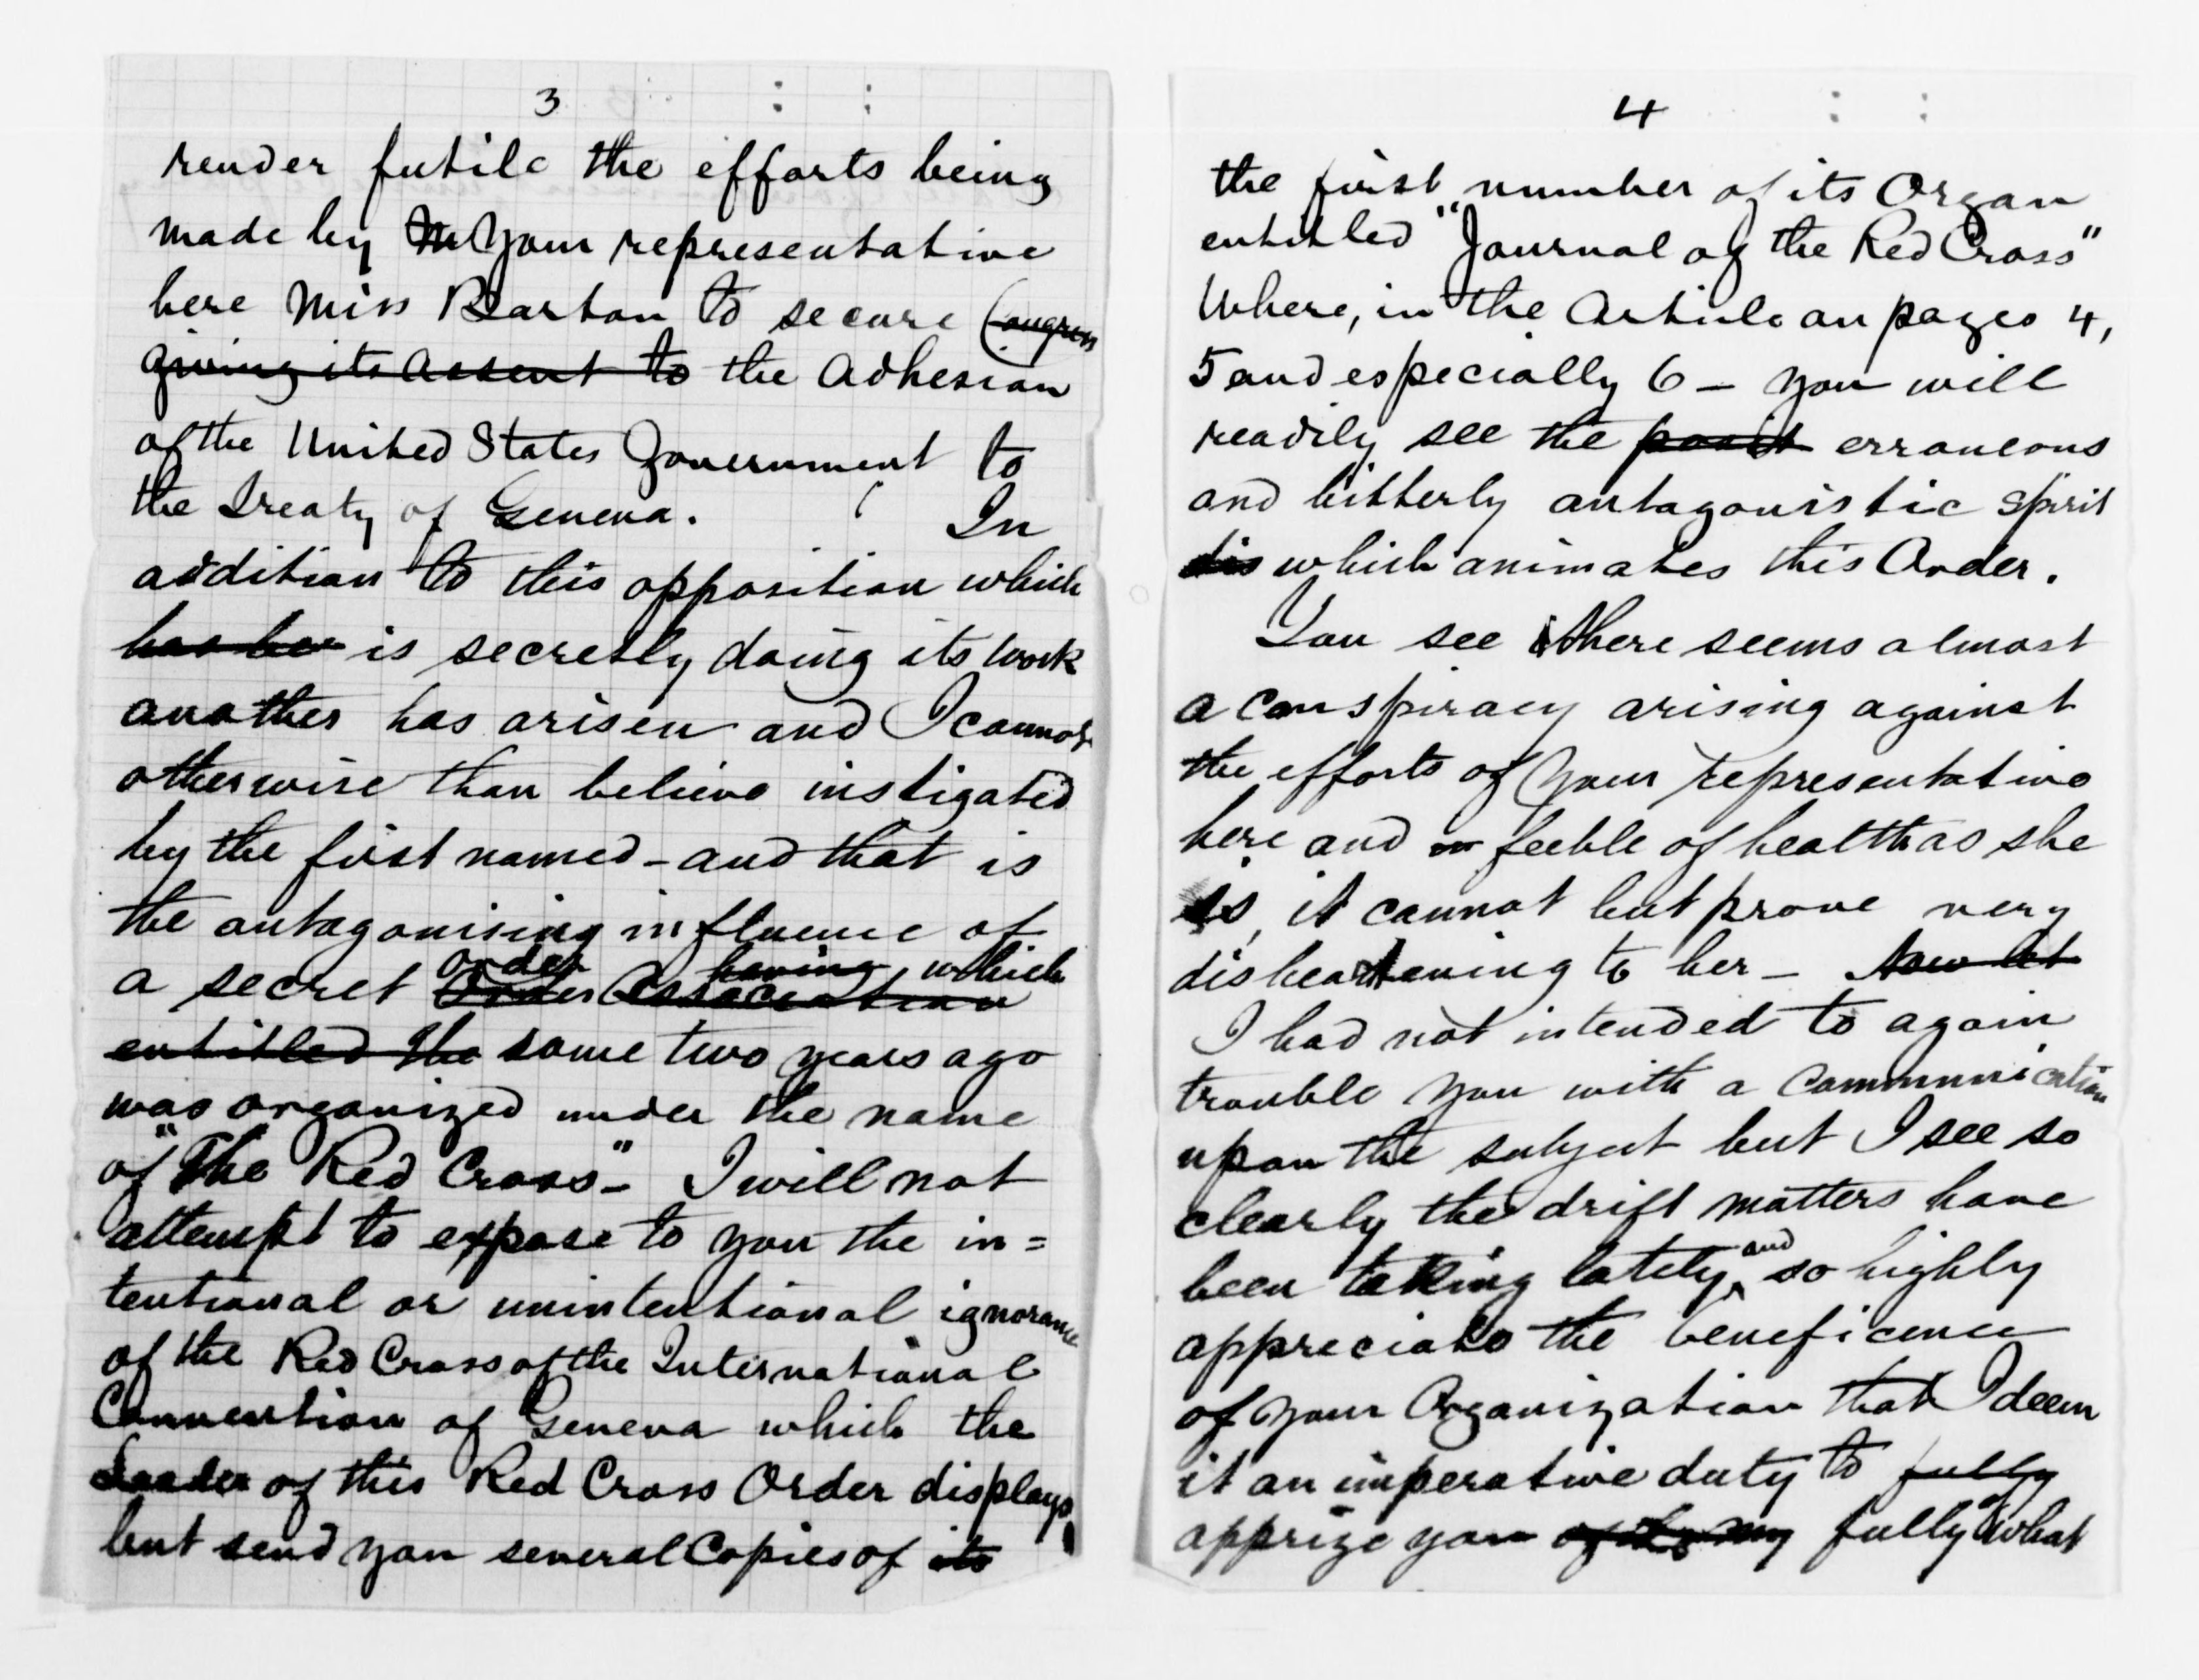 3
render futile the efforts being
made by M Your representative
here Miss Barton to secure Congress
giving its assent to the Adhesion
of the United States Government to
the Treaty of Geneva. In
addition to this opposition which
has be is secretly doing its work
another has arisen and I cannot
otherwise than believe instigated
by the first named - and that is
the antagonising influence of
order having which
a secret Order Association
entitled the some two years ago
was organized under the name
of "The Red Cross"- I will not
attempt to expose to you the in=
tentional or unintentional ignorance
of the Red Cross of the International
Convention of Geneva which the
Leader of this Red Cross Order displays,
but send you several Copies of its
4
the first number of its Organ
entitled "Journal of the Red Cross"
Where, in the Article on pages 4,
5 and especially 6 - you will
readily see the erroneous
and bitterly antagonistic spirit
dis which animates this Order.
You see there seems almost
a conspiracy arising against
the efforts of your representative
here and in feeble of health as she
is, it cannot but prove very
disheartening to her - Now let
I had not intended to again
trouble you with a Communication
upon the subject but I see so
clearly the drift matters have
and
been taking lately, so highly
appreciate the beneficence
of your Organization that I deem
it an imperative duty to fully
apprize you of the my fully what